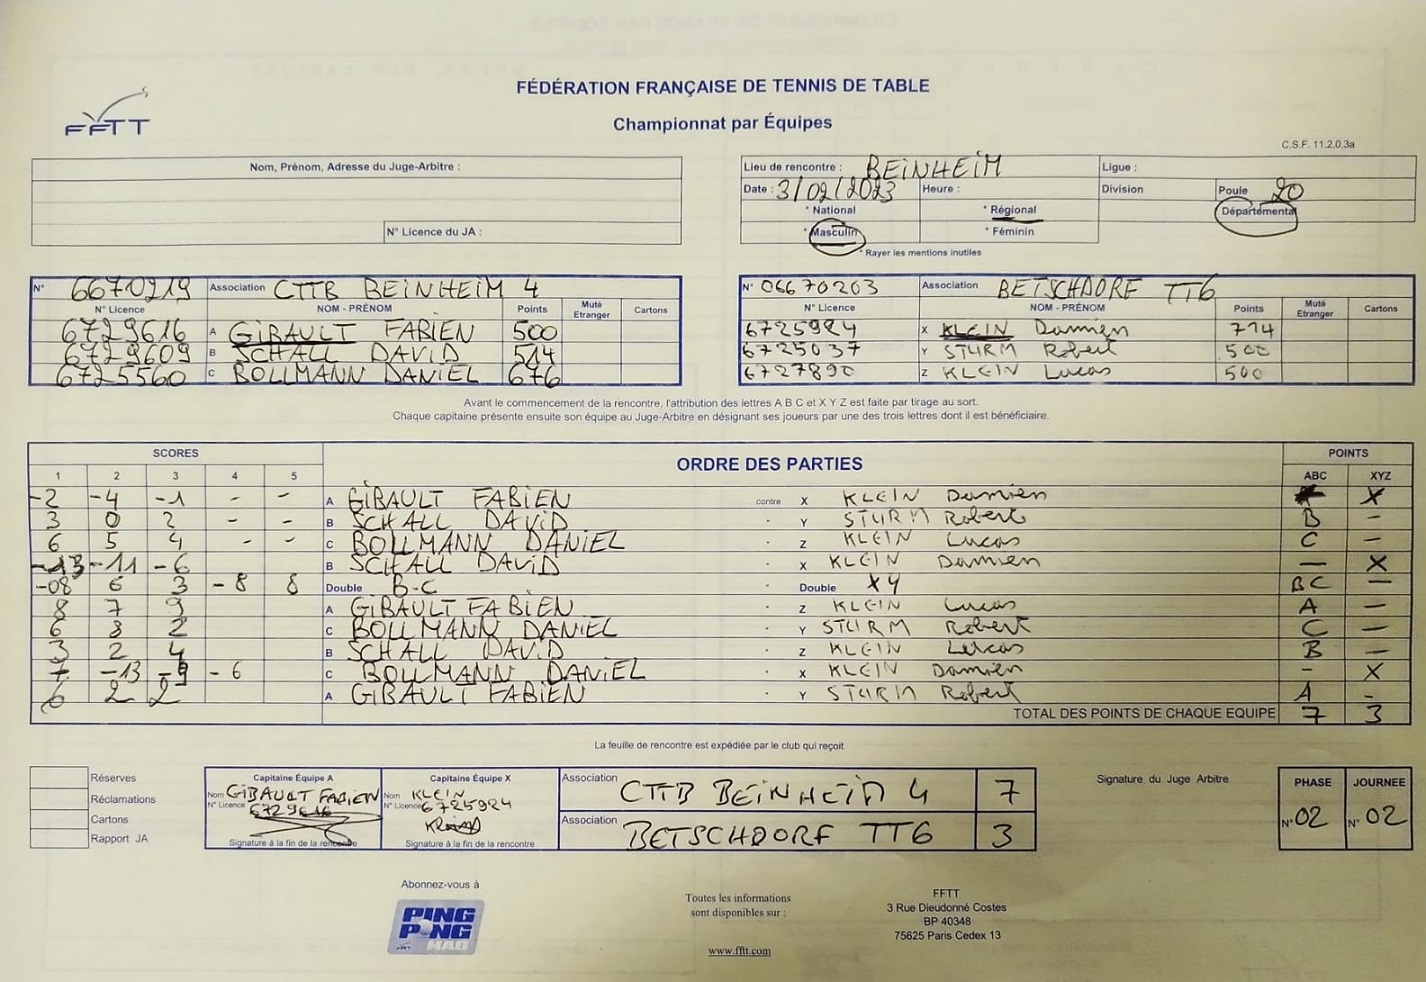 FÉDÉRATION FRANÇAISE DE TENNIS DE TABLE
FFTT
Championnat par Équipes
C.S.F. 11.2.0.3a
Nom, Prénom, Adresse du Juge-Arbitre :
N° Licence du JA :
Lieu de rencontre : BEINHEIM Ligue :
Date : 3/02/2023 Heure : Division Poule 20
* National * Régional Départemental
* Masculin * Féminin
* Rayer les mentions inutiles
N° 6670219 Association CTTB BEINHEIM 4
N° Licence NOM - PRÉNOM Points Muté Etranger Cartons
6729616 A GIBAULT FABIEN 500
6729609 B SCHALL DAVID 514
6725560 C BOLLMANN DANIEL 676
N° 06670203 Association BETSCHDORF TT6
N° Licence NOM - PRÉNOM Points Muté Etranger Cartons
6725924 X KLEIN Damien 714
6725037 Y STURM Robert 500
6727890 Z KLEIN Lucas 500
Avant le commencement de la rencontre, l'attribution des lettres A B C et X Y Z est faite par tirage au sort.
Chaque capitaine présente ensuite son équipe au Juge-Arbitre en désignant ses joueurs par une des trois lettres dont il est bénéficiaire.
SCORES ORDRE DES PARTIES POINTS
1 2 3 4 5 ABC XYZ
-2 -4 -1 - - A GIBAULT FABIEN contre X KLEIN Damien X
3 0 2 - - B SCHALL DAVID Y STURM Robert B -
6 5 4 - - C BOLLMANN DANIEL Z KLEIN Lucas C -
-13 -11 -6 B SCHALL DAVID X KLEIN Damien - X
-08 6 3 -8 8 Double B-C Double XY BC -
8 7 9 A GIBAULT FABIEN Z KLEIN Lucas A -
6 8 2 C BOLLMANN DANIEL Y STURM Robert C -
3 2 4 B SCHALL DAVID Z KLEIN Lucas B -
7 -13 -9 -6 C BOLLMANN DANIEL X KLEIN Damien - X
6 2 2 A GIBAULT FABIEN Y STURM Robert A -
TOTAL DES POINTS DE CHAQUE EQUIPE 7 3
La feuille de rencontre est expédiée par le club qui reçoit
Réserves
Réclamations
Cartons
Rapport JA
Capitaine Équipe A
Nom GIBAULT FABIEN
N° Licence 6729616
Signature à la fin de la rencontre
Capitaine Équipe X
Nom KLEIN
N° Licence 6725924
Signature à la fin de la rencontre
Association CTTB BEINHEIM 4 7
Association BETSCHDORF TT6 3
Signature du Juge Arbitre
PHASE JOURNEE
N° 02 N° 02
Abonnez-vous à
PING PONG MAG
Toutes les informations
sont disponibles sur :
www.fftt.com
FFTT
3 Rue Dieudonné Costes
BP 40348
75625 Paris Cedex 13